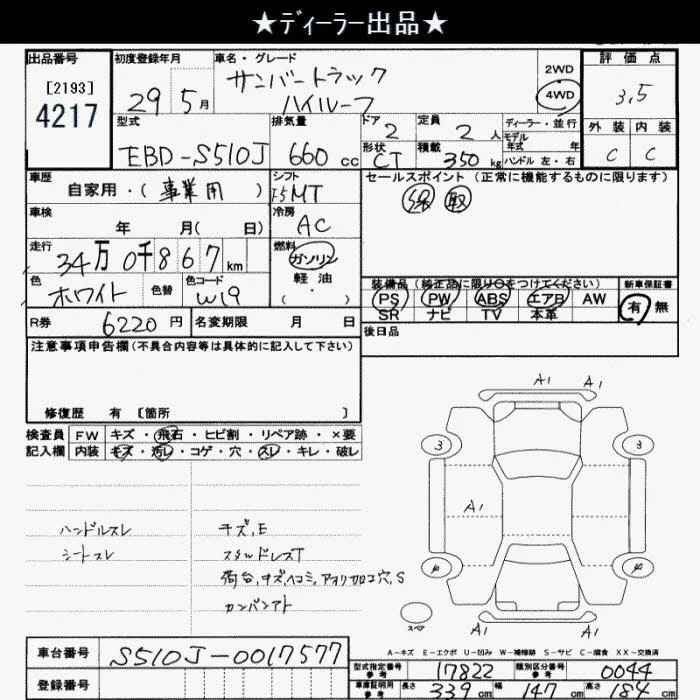 ★ディーラー出品★
出品番号 初度登録年月 車名・グレード 評価点
[2193] 29年5月 サンバートラック 2WD
4217 ハイルーフ 4WD 3.5
型式 排気量 ドア 2 定員 2人 ディーラー・並行 外装 内装
EBD-S510J 660cc 形状 CT 積載 350kg モデル年式 年 C C
ハンドル左・右
車歴 シフト セールスポイント(正常に機能するものに限ります)
自家用・(事業用) F5MT 保 取
車検 冷房
年 月( 日) AC
走行 燃料
34万0千867km ガソリン
軽油
(・)
色 色替 色コード 装備品(純正品に限り○をつけてください) 新車保証書
ホワイト W19 PS PW ABS エアB AW 有 無
SR ナビ TV 本革
R券 6220円 名変期限 月 日 後日品
注意事項申告欄(不具合内容等は具体的に記入して下さい)
修復歴 有 〔箇所 〕
検査員 FW キズ・飛石・ヒビ割・リペア跡・×要
記入欄 内装 キズ・汚レ・コゲ・穴・スレ・キレ・破レ
A1 A1
3 3
A1 A1
4 4
A1 A1
スペア
ハンドルスレ キズ,E
シートスレ スタッドレスT
荷台,キズ,ヘコミ,アオリ加工穴,S
カンバンアト
A-キズ E-エクボ U-凹み W-補修跡 S-サビ C-腐食 XX-交換済
車台番号 S510J-0017577
型式指定番号 参考 17822 類別区分番号 参考 0044
登録番号 車庫証明用 参考 長さ 339cm 幅 147cm 高さ 184cm